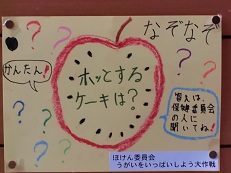 なぞなぞ
かんたん!
ホッとする
ケーキは?
答えは、
保健委員会
の人に
聞いてね!
ほけん委員会
うがいをいっぱいしよう大作戦